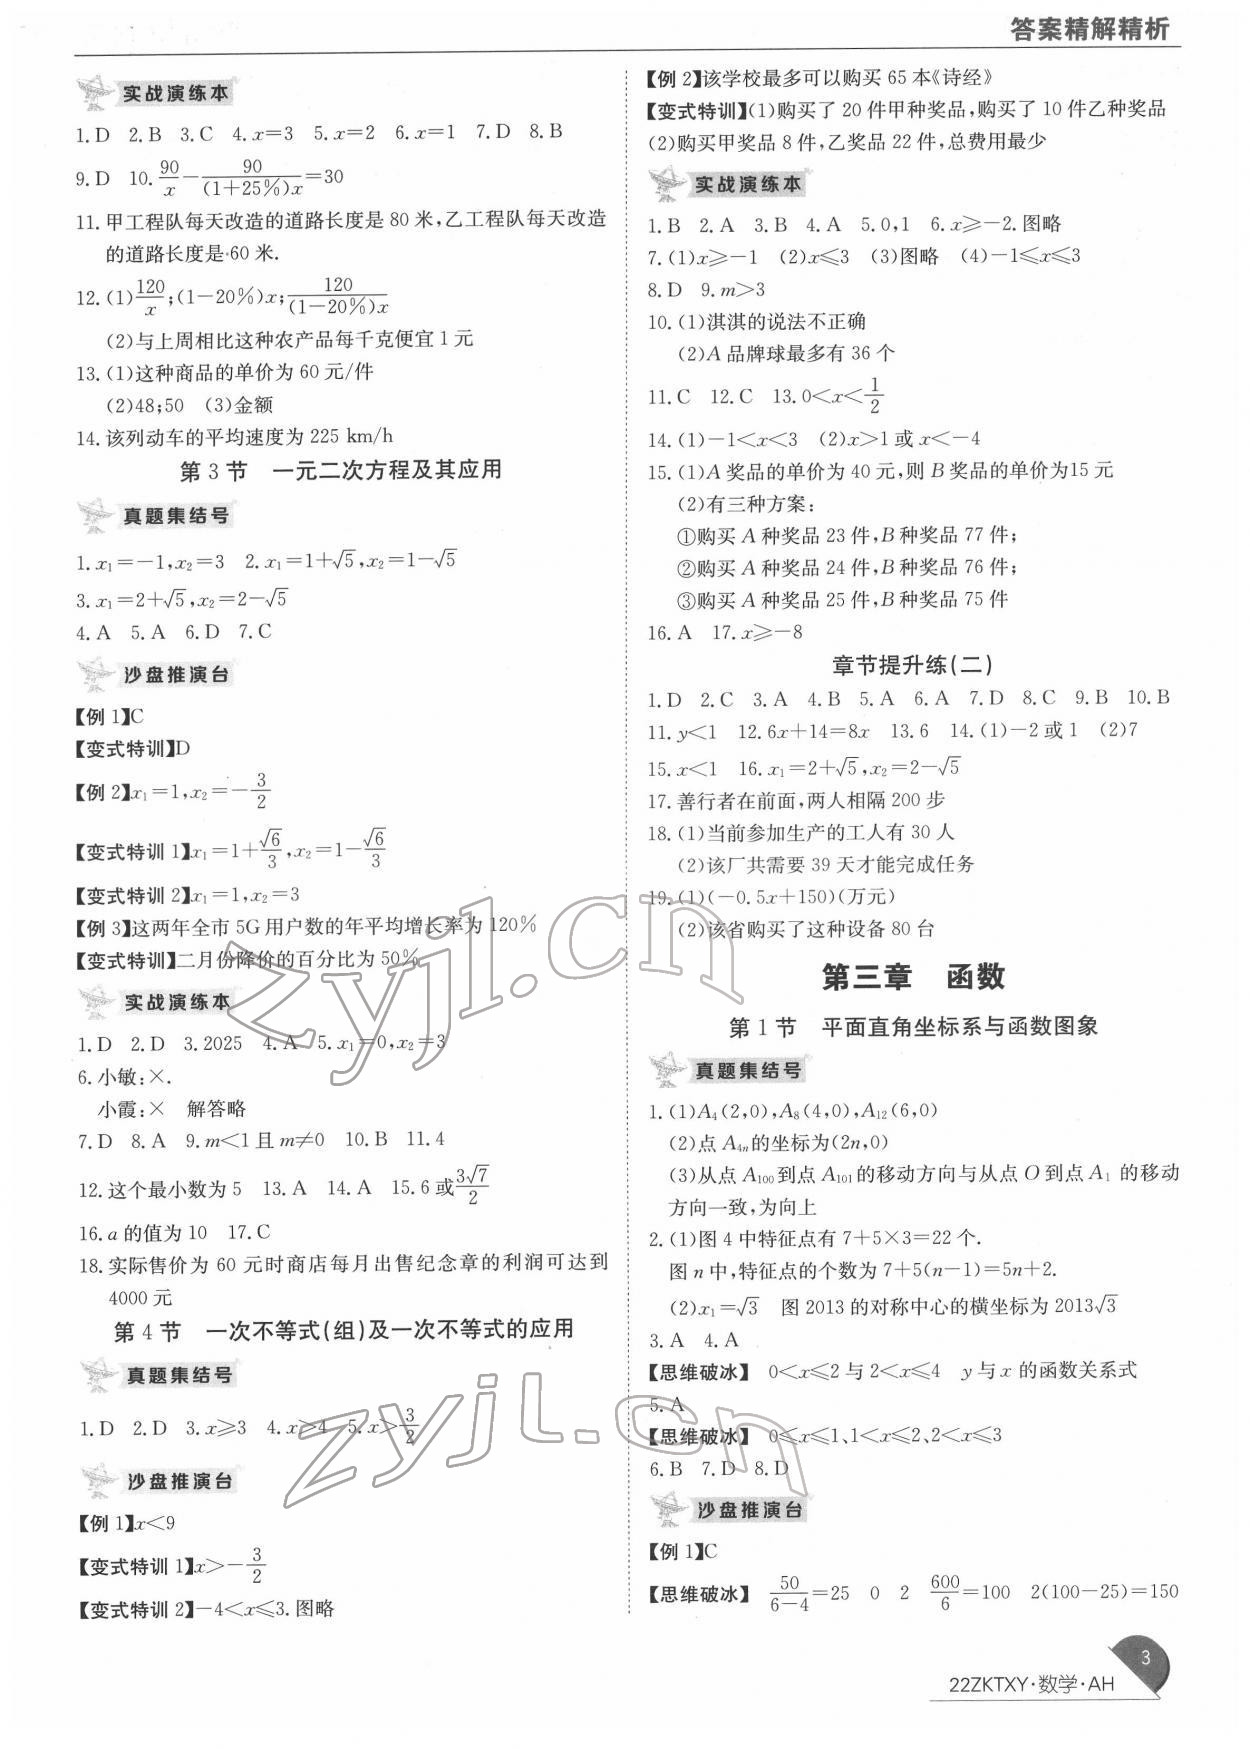 答案精解精析
实战演练本
1. D 2. B 3. C 4. x=3 5. x=2 6. x=1 7. D 8. B
9. D 10. 90/x − 90/(1+25%)x =30
11. 甲工程队每天改造的道路长度是 80 米,乙工程队每天改造
的道路长度是 60 米.
12. (1) 120/x;(1−20%)x; 120/(1−20%)x
(2)与上周相比这种农产品每千克便宜 1 元
13. (1)这种商品的单价为 60 元/件
(2)48;50 (3)金额
14. 该列动车的平均速度为 225 km/h
第 3 节 一元二次方程及其应用
真题集结号
1. x₁=−1,x₂=3 2. x₁=1+√5,x₂=1−√5
3. x₁=2+√5,x₂=2−√5
4. A 5. A 6. D 7. C
沙盘推演台
【例 1】C
【变式特训】D
【例 2】x₁=1,x₂=−3/2
【变式特训 1】x₁=1+√6/3,x₂=1−√6/3
【变式特训 2】x₁=1,x₂=3
【例 3】这两年全市 5G 用户数的年平均增长率为 120%
【变式特训】二月份降价的百分比为 50%
实战演练本
1. D 2. D 3. 2025 4. A 5. x₁=0,x₂=3
6. 小敏:×.
小霞:× 解答略
7. D 8. A 9. m<1 且 m≠0 10. B 11. 4
12. 这个最小数为 5 13. A 14. A 15. 6 或 3√7/2
16. a 的值为 10 17. C
18. 实际售价为 60 元时商店每月出售纪念章的利润可达到
4000 元
第 4 节 一次不等式(组)及一次不等式的应用
真题集结号
1. D 2. D 3. x≥3 4. x>4 5. x>3/2
沙盘推演台
【例 1】x<9
【变式特训 1】x>−3/2
【变式特训 2】−4<x≤3. 图略
【例 2】该学校最多可以购买 65 本《诗经》
【变式特训】(1)购买了 20 件甲种奖品,购买了 10 件乙种奖品
(2)购买甲奖品 8 件,乙奖品 22 件,总费用最少
实战演练本
1. B 2. A 3. B 4. A 5. 0,1 6. x≥−2. 图略
7. (1)x≥−1 (2)x≤3 (3)图略 (4)−1≤x≤3
8. D 9. m>3
10. (1)淇淇的说法不正确
(2)A 品牌球最多有 36 个
11. C 12. C 13. 0<x<1/2
14. (1)−1<x<3 (2)x>1 或 x<−4
15. (1)A 奖品的单价为 40 元,则 B 奖品的单价为15 元
(2)有三种方案:
①购买 A 种奖品 23 件,B 种奖品 77 件;
②购买 A 种奖品 24 件,B 种奖品 76 件;
③购买 A 种奖品 25 件,B 种奖品 75 件
16. A 17. x≥−8
章节提升练(二)
1. D 2. C 3. A 4. B 5. A 6. A 7. D 8. C 9. B 10. B
11. y<1 12. 6x+14=8x 13. 6 14. (1)−2 或 1 (2)7
15. x<1 16. x₁=2+√5,x₂=2−√5
17. 善行者在前面,两人相隔 200 步
18. (1)当前参加生产的工人有 30 人
(2)该厂共需要 39 天才能完成任务
19. (1)(−0.5x+150)(万元)
(2)该省购买了这种设备 80 台
第三章 函数
第 1 节 平面直角坐标系与函数图象
真题集结号
1. (1)A₄(2,0),A₈(4,0),A₁₂(6,0)
(2)点 A₄ₙ的坐标为(2n,0)
(3)从点 A₁₀₀到点 A₁₀₁的移动方向与从点 O 到点 A₁ 的移动
方向一致,为向上
2. (1)图 4 中特征点有 7+5×3=22 个.
图 n 中,特征点的个数为 7+5(n−1)=5n+2.
(2)x₁=√3 图 2013 的对称中心的横坐标为 2013√3
3. A 4. A
【思维破冰】 0<x≤2 与 2<x≤4 y 与 x 的函数关系式
5. A
【思维破冰】 0≤x≤1、1<x≤2、2<x≤3
6. B 7. D 8. D
沙盘推演台
【例 1】C
【思维破冰】 50/(6−4)=25 0 2 600/6=100 2(100−25)=150
3
22ZKTXY·数学·AH
zyjl.cn
zyjl.cn